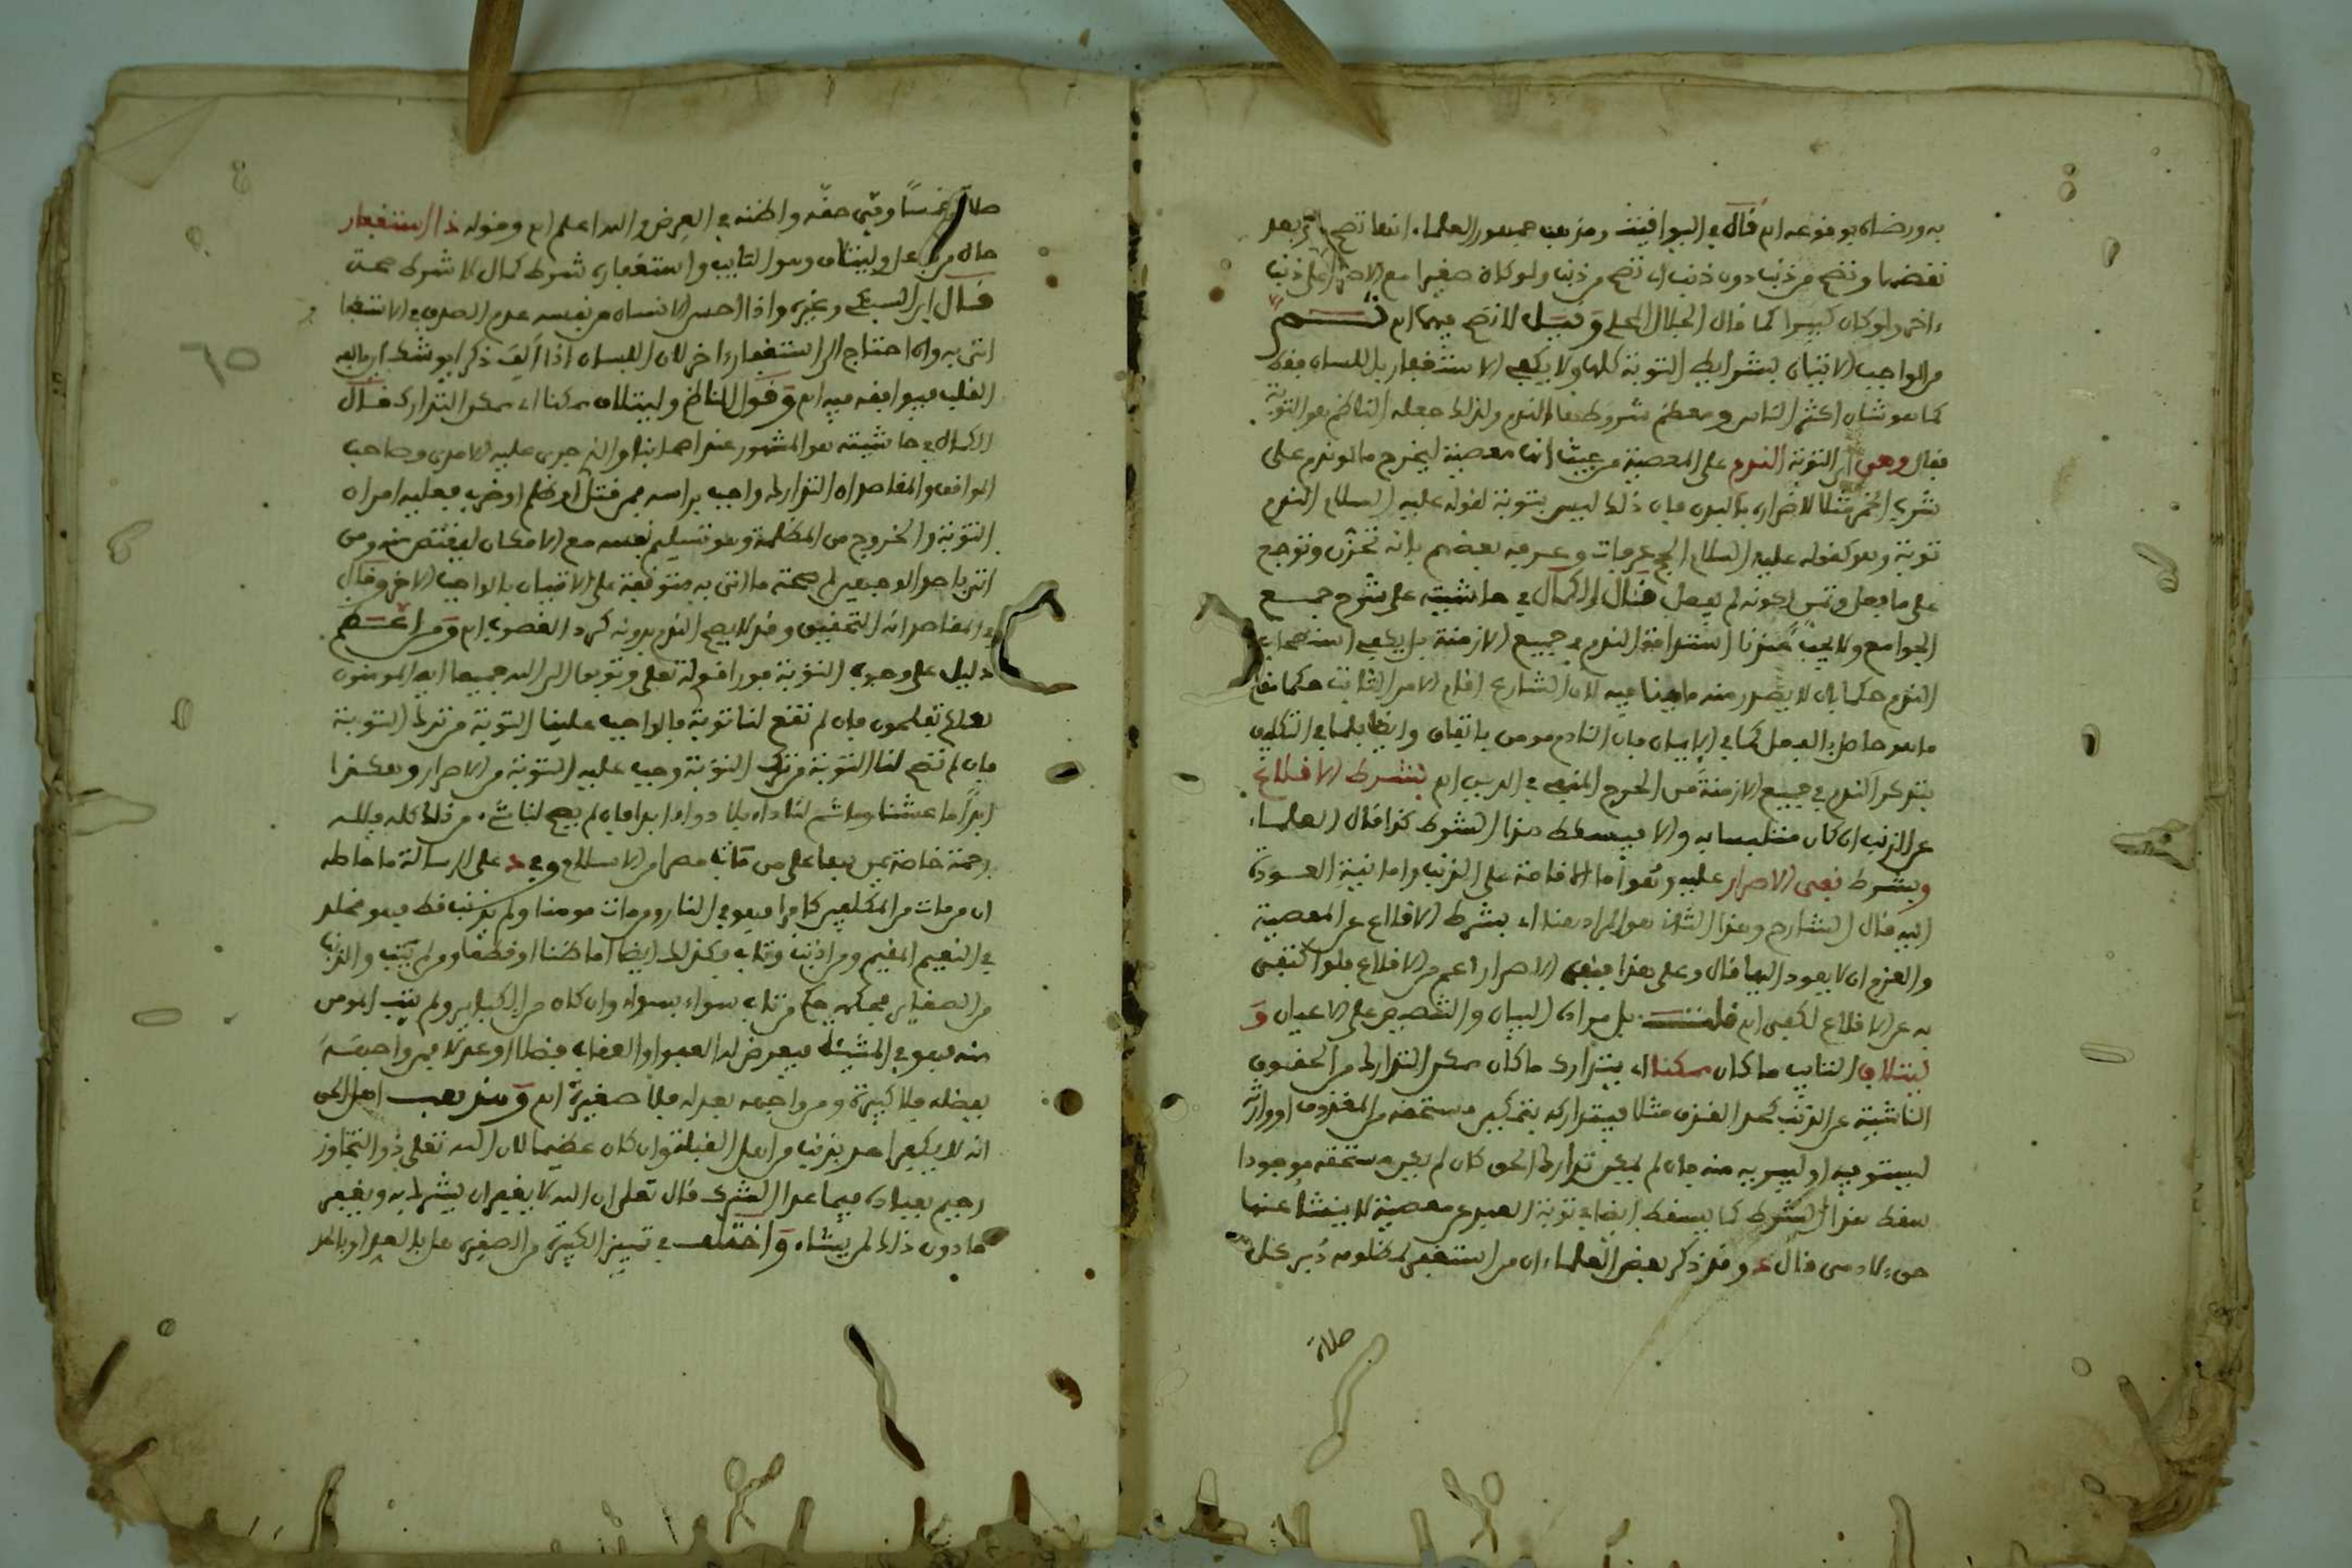 به ورضاه بوقوعه اه قال في اليواقيت ومذهب جمهور العلماء انها تصح بعد
نقضها وتصح من ذنب دون ذنب اي تصح من ذنب ولو كان صغيرا مع الاصرار على ذنب
ءاخر ولو كان كبيرا كما قال الجلال المحلي وقيل لا تصح فيهما اه ثم
من الواجب الاتيان بشرايط التوبة كلها ولا يكفي الاستغفار باللسان فقط
كما هو شان اكثر الناس ومعظم شروطها الندم ولذلك جعله الناظم هو التوبة
فقال وهي اي التوبة الندم على المعصية من حيث انها معصية ليخرج ما لو ندم على
شرب الخمر مثلا لاضراره بالبدن فان ذلك ليس بتوبة لقوله عليه السلام الندم
توبة وهو كقوله عليه السلام الحج عرفات وعرفه بعضهم بانه تحزن وتوجع
على ما فعل وتمني كونه لم يفعل قال الكمال في حاشيته على شرح جمع
الجوامع ولا يجب عندنا استدامة الندم في جميع الازمنة بل يكفي استصحاب
الندم حكما بان لا يصدر منه ما ينافيه لان الشارع اقام الامر الثابت حكما مقام
ما هو حاصل بالفعل كما في الايمان فان النادم مومن باتفاق وايضا لما في التكليف
بتذكر الندم في جميع الازمنة من الحرج المنفي في الدين اه بشرط الاقلاع
عن الذنب ان كان متلبسا به والا فيسقط هذا الشرط كذا قال العلماء
وبشرط نفي الاصرار عليه وهو اما الاقامة على الذنب واما نية العود
اليه قال الشارح وهذا الثاني هو المراد هنا اي بشرط الاقلاع عن المعصية
والعزم ان لا يعود اليها قال وعلى هذا فنفي الاصرار اعم من الاقلاع فلو اكتفى
به عن الاقلاع لكفى اه قلت بل مراده البيان والتنصيص على الاعيان و
ليتلاف التايب ما كان ممكنا اي يتدارك ما كان ممكن التدارك من الحقوق
الناشية عن الذنب كحد القذف مثلا فيتداركه بتمكين مستحقه من المقذوف او وارثه
ليستوفيه او ليبريه منه فان لم يمكن تدارك الحق كان لم يكن مستحقه موجودا
سقط هذا الشرط كما يسقط ايضا في توبة العبد عن معصية لا ينشا عنها
حق ءلادمي قال وقد ذكر بعض العلماء ان من استغفر لمظلومه دبر كل
صلاة
صلاة خمسا وفى حقه وا في العرض والله اعلم اه وقوله ذا استغفار
حال من فاعل وليتلاف وهو التايب واستغفاره شرط كمال لا شرط صحة
قال ابن السبكي وغيره واذا احس الانسان من نفسه عدم الصدق في الاستغفار
اتى به وان احتاج الى استغفار ءاخر لان اللسان اذا الف ذكرا يوشك ان يالفه
القلب فيوافقه فيه اه وقول الناظم وليتلاف ممكنا اي ممكن التدارك قال
الكمال في حاشيته هو المشهور عند اصحابنا والذي جرى عليه الامدي وصاحب
المواقف والمقاصد ان التدارك واجب براسه فمن قتل او ظلم او ضرب فعليه امران
التوبة والخروج من المظلمة وهو تسليم نفسه مع الامكان ليقتص منه ومن
اتى باحد الواجبين لم صحة ما اتى به متوقفة على الاتيان بالواجب الاخر وقال
في المقاصد انه التحقيق وقد لا يصح الندم بدونه كرد المغصوب اه ومن اعظم
دليل على وجوب التوبة فورا قوله تعلى وتوبوا الى الله جميعا ايه المومنون
لعلكم تفلحون فان لم تقع لنا توبة فالواجب علينا التوبة من ترك التوبة
فان لم تصح لنا التوبة من ترك التوبة وجب عليه التوبة من الاصرار وهكذا
ابدا ما عشنا وما ثم لنا داء بلا دواء ابدا فان لم يصح لنا شيء من ذلك كله فلله
رحمة خاصة يمن بها على من مات مصرا من الاسلام وفي على الرسالة ما حاصله
ان من مات من المكلفين كافرا فهو في النار ومن مات مومنا ولم يذنب قط فهو مخلد
في النعيم المقيم ومن اذنب وتاب فكذلك ايضا اما ظنا او قطعا ومن لم يتب والذنب
من الصغاير فحكمه حكم من تاب سواء بسواء وان كان من الكباير ولم يتب المومن
منه فهو في المشيئة فيعرض له العفو او العقاب فضلا او عدلا فمن واجهه
بفضله فلا كبيرة ومن واجهه بعدله فلا صغيرة اه ومذهب اهل الحق
انه لا يكفر احد بذنب من اهل القبلة وان كان عظيما لان الله تعلى ذو التجاوز
رحيم بعباده فيما عدا الشرك قال تعلى ان الله لا يغفر ان يشرك به ويغفر
ما دون ذلك لمن يشاء واختلف في تمييز الكبيرة من الصغيرة هل بالعد او بالحد